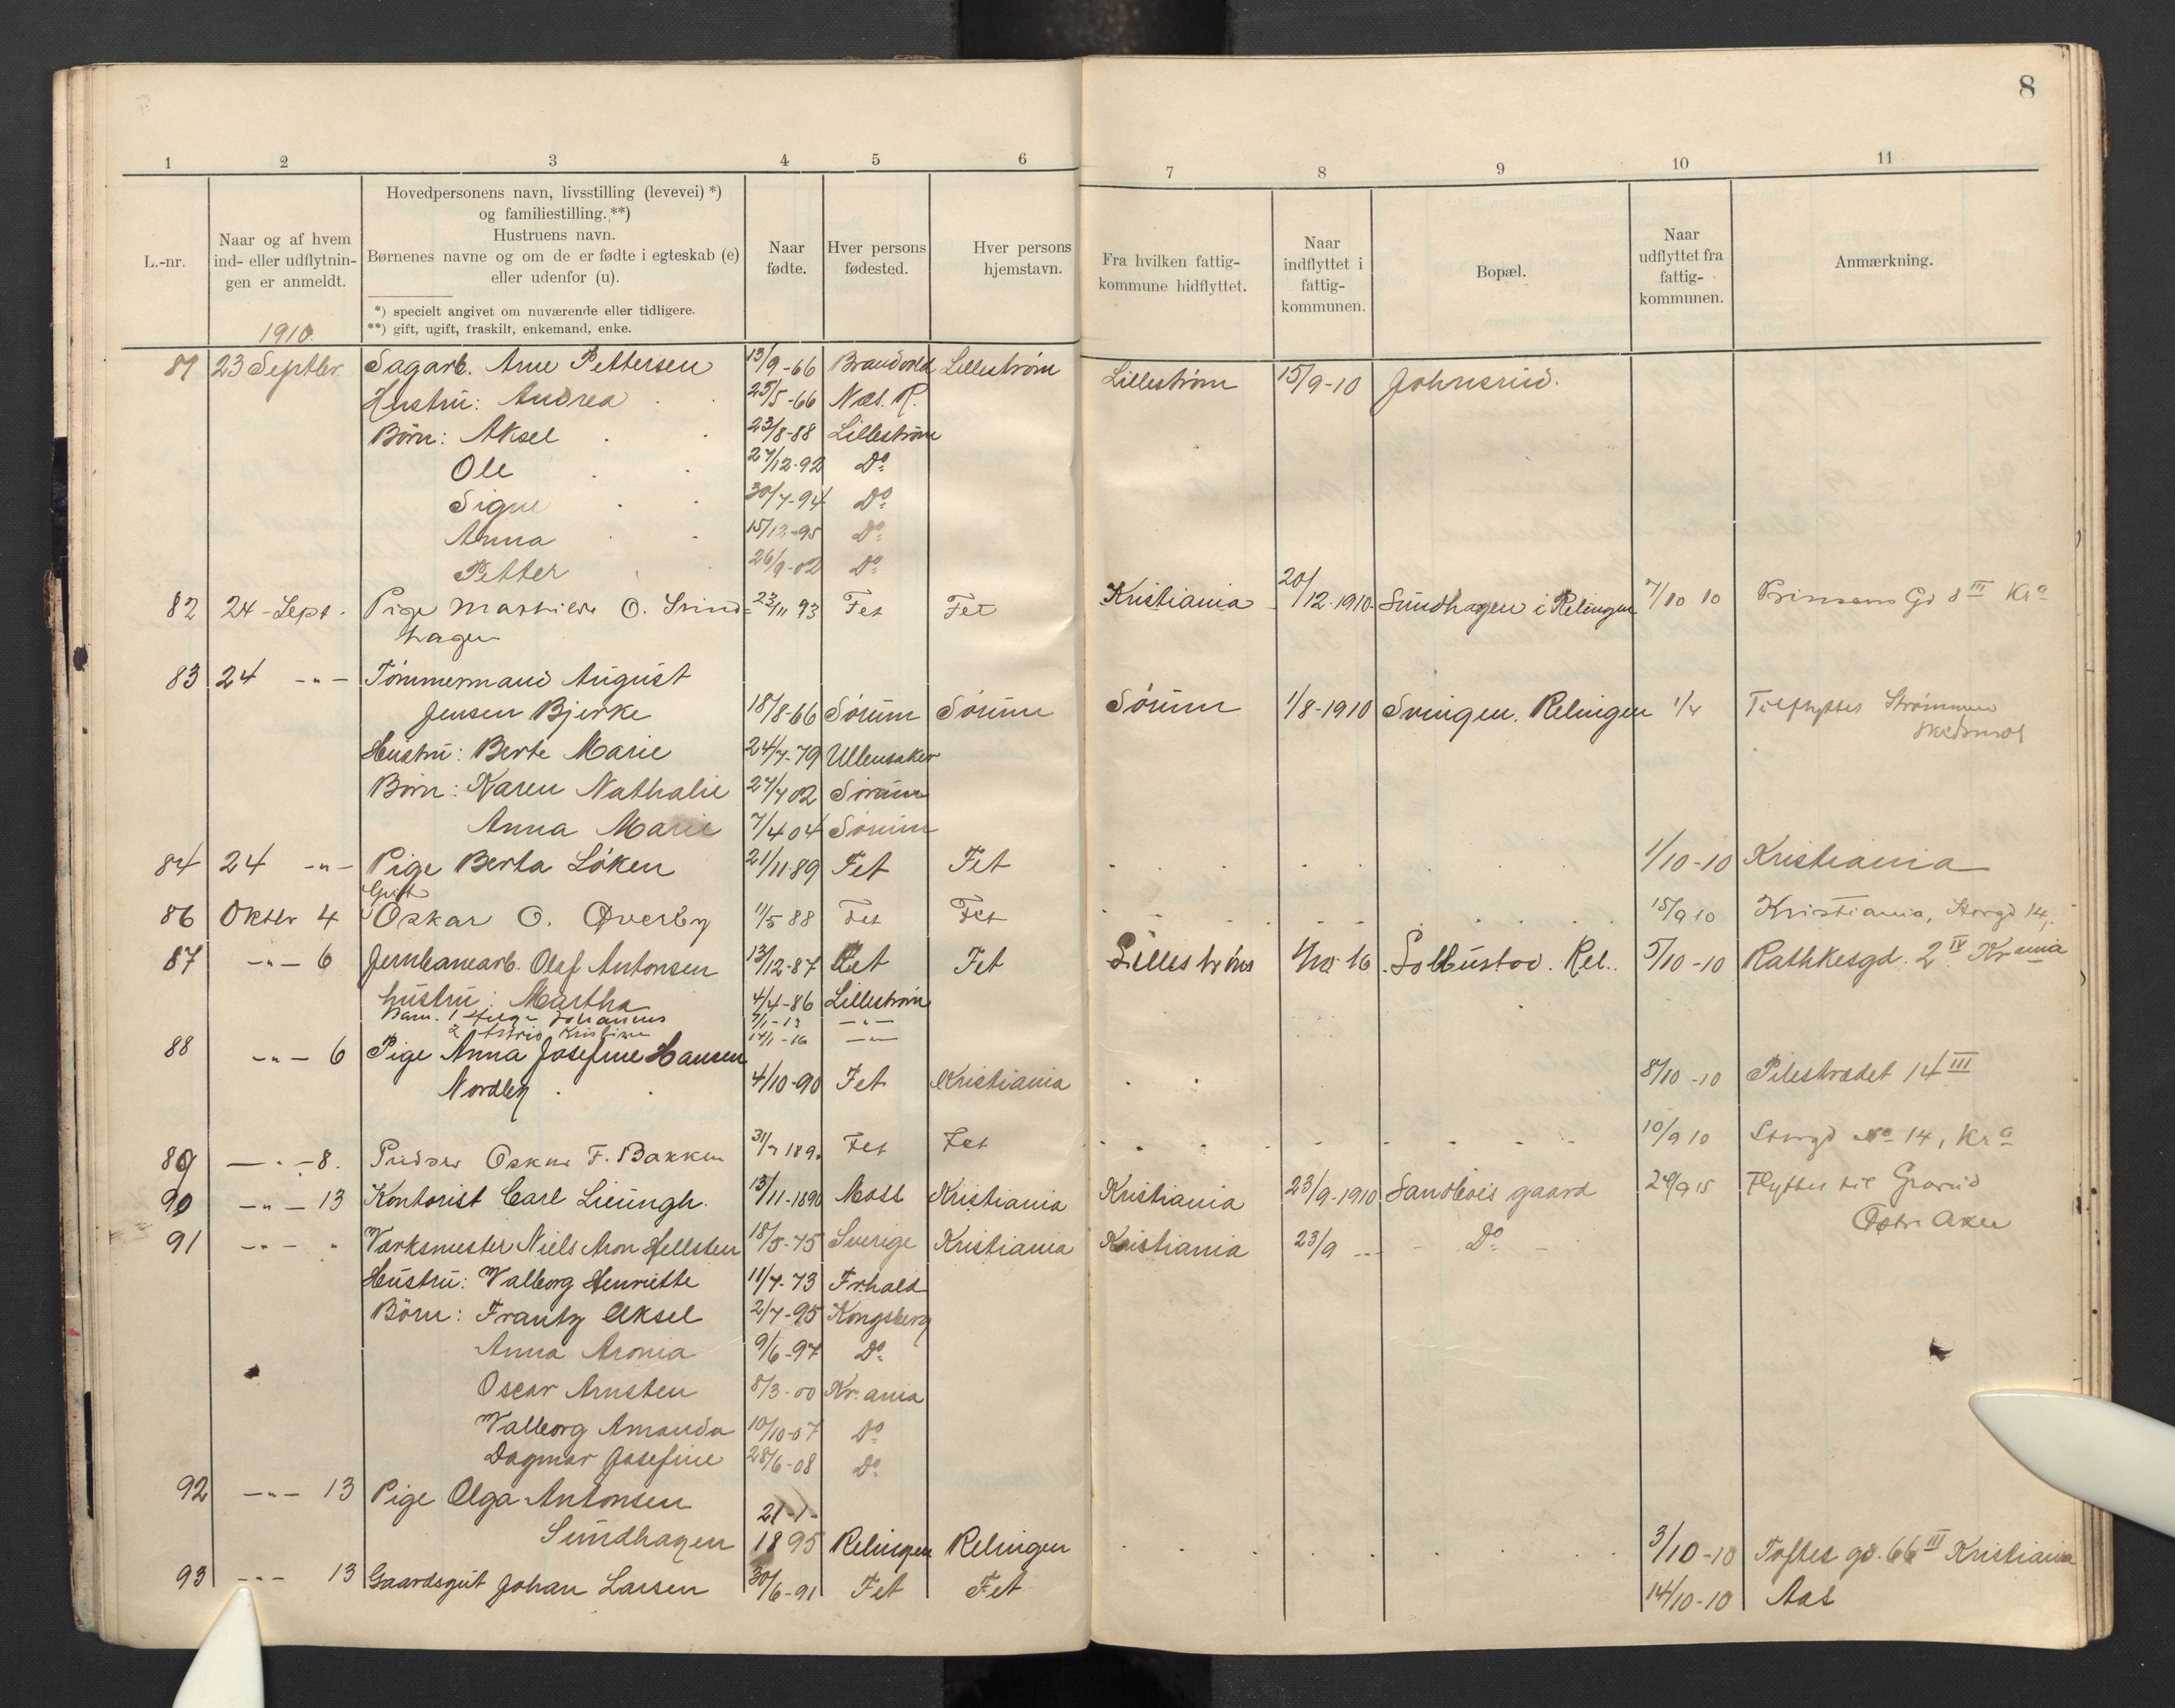 8
1 2 3 4 5 6 7 8 9 10 11
L.-nr.
Naar og af hvem
ind- eller udflytnin-
gen er anmeldt.
1910.
Hovedpersonens navn, livsstilling (levevei) *)
og familiestilling.**)
Hustruens navn.
Børnenes navne og om de er fødte i egteskab (e)
eller udenfor (u).
*) specielt angivet om nuværende eller tidligere.
**) gift, ugift, fraskilt, enkemand, enke.
Naar
fødte.
Hver persons
fødested.
Hver persons
hjemstavn.
Fra hvilken fattig-
kommune hidflyttet.
Naar
indflyttet i
fattig-
kommunen.
Bopæl.
Naar
udflyttet fra
fattig-
kommunen.
Anmærkning.
81 23 Septbr Sagarb. Arne Pettersen 13/9-66 Brandvold Lillestrøm Lillestrøm 15/9-10 Johnsrud.
Hustru: Andrea 25/5-66 Næs. R.
Børn: Aksel 23/8-88 Lillestrøm
Ole 27/12-92 Do
Signe 30/7-94 Do
Anna 15/12-95 Do
Petter 26/9-02 Do
82 24-Sept. Pige Mathilde O. Sund- 23/11 93 Fet Fet Kristiania 20/12-1910 Sundhagen i Relingen 7/10 10 Prinsens Gd 8 III Kra
hagen
83 24 -"- Tømmermand August
Jensen Bjerke 18/8-66 Sørum Sørum Sørum 1/8-1910 Svingen. Relingen 1/4 Tilflyttet Strømmen
Skedsmo
Hustru: Berte Marie 24/7-79 Ullensaker
Børn: Karen Nathalie 27/7 02 Sørum
Anna Marie 7/4 04 Sørum
84 24 -"- Pige Berta Løken 21/11-89 Fet Fet 1/10-10 Kristiania
Gut
86 Oktbr 4 Oskar O. Øverby 11/5 88 Fet Fet 15/9 10 Kristiania, Storgd 14,
87 -"- 6 Jernbanearb. Olaf Antonsen 13/12-87 Fet Fet Lillestrøm Solbustad. Rel. 5/10-10 Rathkesgd. 2 IV Kr.ania
hustru: Martha 4/4-86 Lillestrøm
Barn. 1 Helge Johannes 7/1-13 -"-
2 Astrid Kristine 14/1-16 -"-
88 -"- 6 Pige Anna Josefine Hansen
Nordby 4/10-90 Fet Kristiania 8/10-10 Pilestrædet 14 III
89 -"- 8. Pudser Oskar F. Bakken Fet Fet 10/9 10 Storgd No 14, Kra
90 -"- 13 Kontorist Carl Lieungh. 13/11-1890 Moss Kristiania Kristiania 23/9-1910 Sandbois gaard 24/9 15 Flyttet til Grorud
Østre Aker
91 -"- " Værksmester Niels Aron Hellsten 18/5-75 Sverige Kristiania Kristiania 23/9 -"- Do
Hustru: Valborg Henriette 11/7-73 Fr.hald
Børn: Frantz Aksel 2/7-95 Kongsberg
Anna Aronia 9/6-97 Do
Oscar Arnsten 8/3-00 Kr.ania
Valborg Amanda 10/10-07 Do
Dagmar Josefine 28/6-08 Do
92 -"- 13 Pige Olga Antonsen
21-1-
Sundhagen 1895 Relingen Relingen 3/10-10 Toftes gd. 66 III Kristiania
93 -"- 13 Gaardsgut Johan Larsen 30/6-91 Fet Fet 14/10-10 Aas